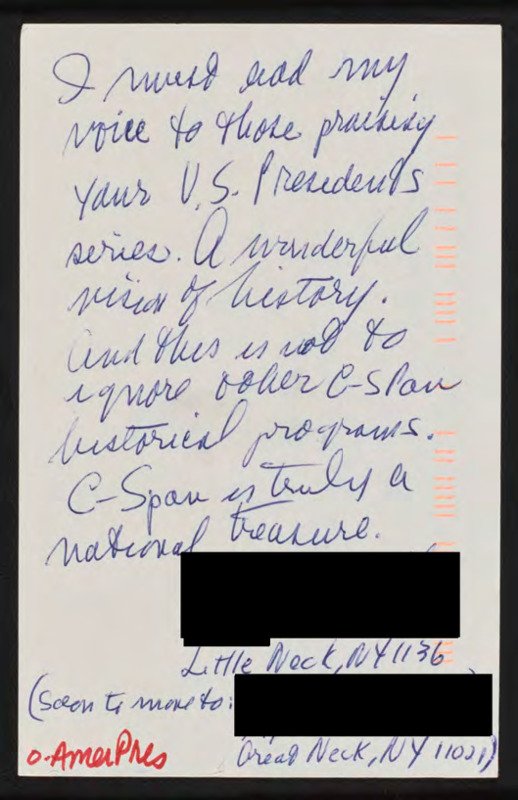 I must add my
voice to those praising
your U.S. Presidents
series. A wonderful
vision of history.
And this is not to
ignore other C-Span
historical programs.
C-Span is truly a
national treasure.
Little Neck, NY 1136
(Soon to move to:
Great Neck, NY 11021)
o-AmerPres